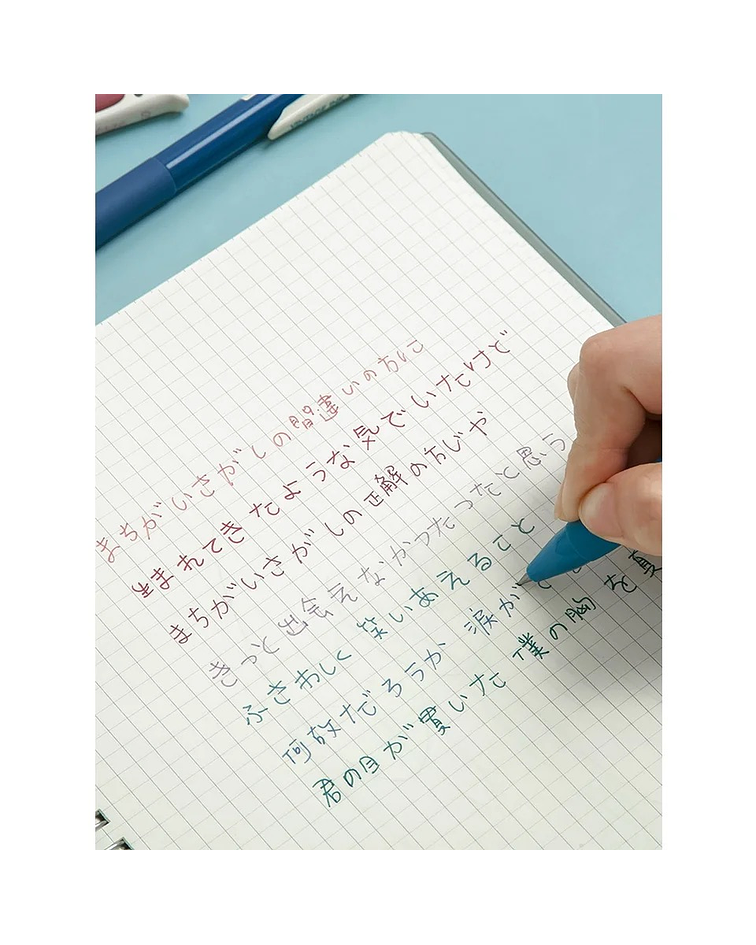 まちがいさがしの間違いの方に
生まれてきたような気でいたけど
まちがいさがしの正解の方じゃ
きっと出会えなかったったと思う
ふさわしく 笑いあえること
何故だろうか 涙が
君の目が貫いた 僕の胸を真